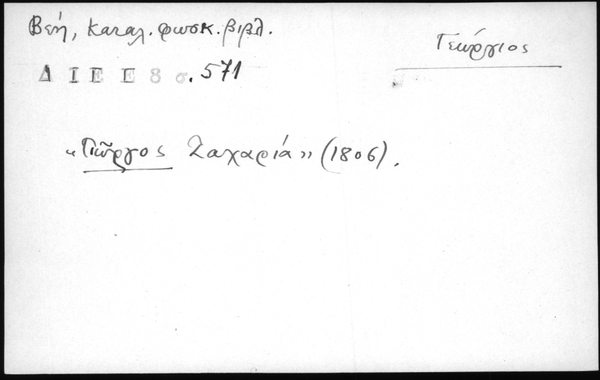 Βεή, Καταλ. φωσκ. βιβλ.
Γεώργιος
Δ Ι Ε Ε 8 σ. 571
«Γιῶργος Ζαχαρία» (1806).